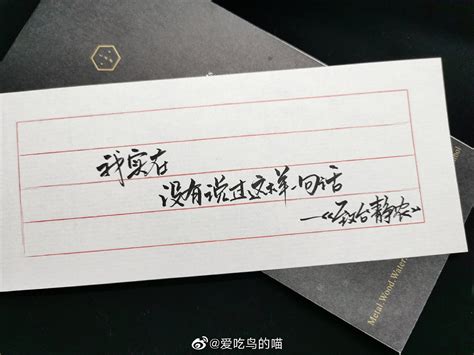 我实在
没有说过这样一句话
—《致台静农》
Metal.Wood.Water.
@爱吃鸟的喵